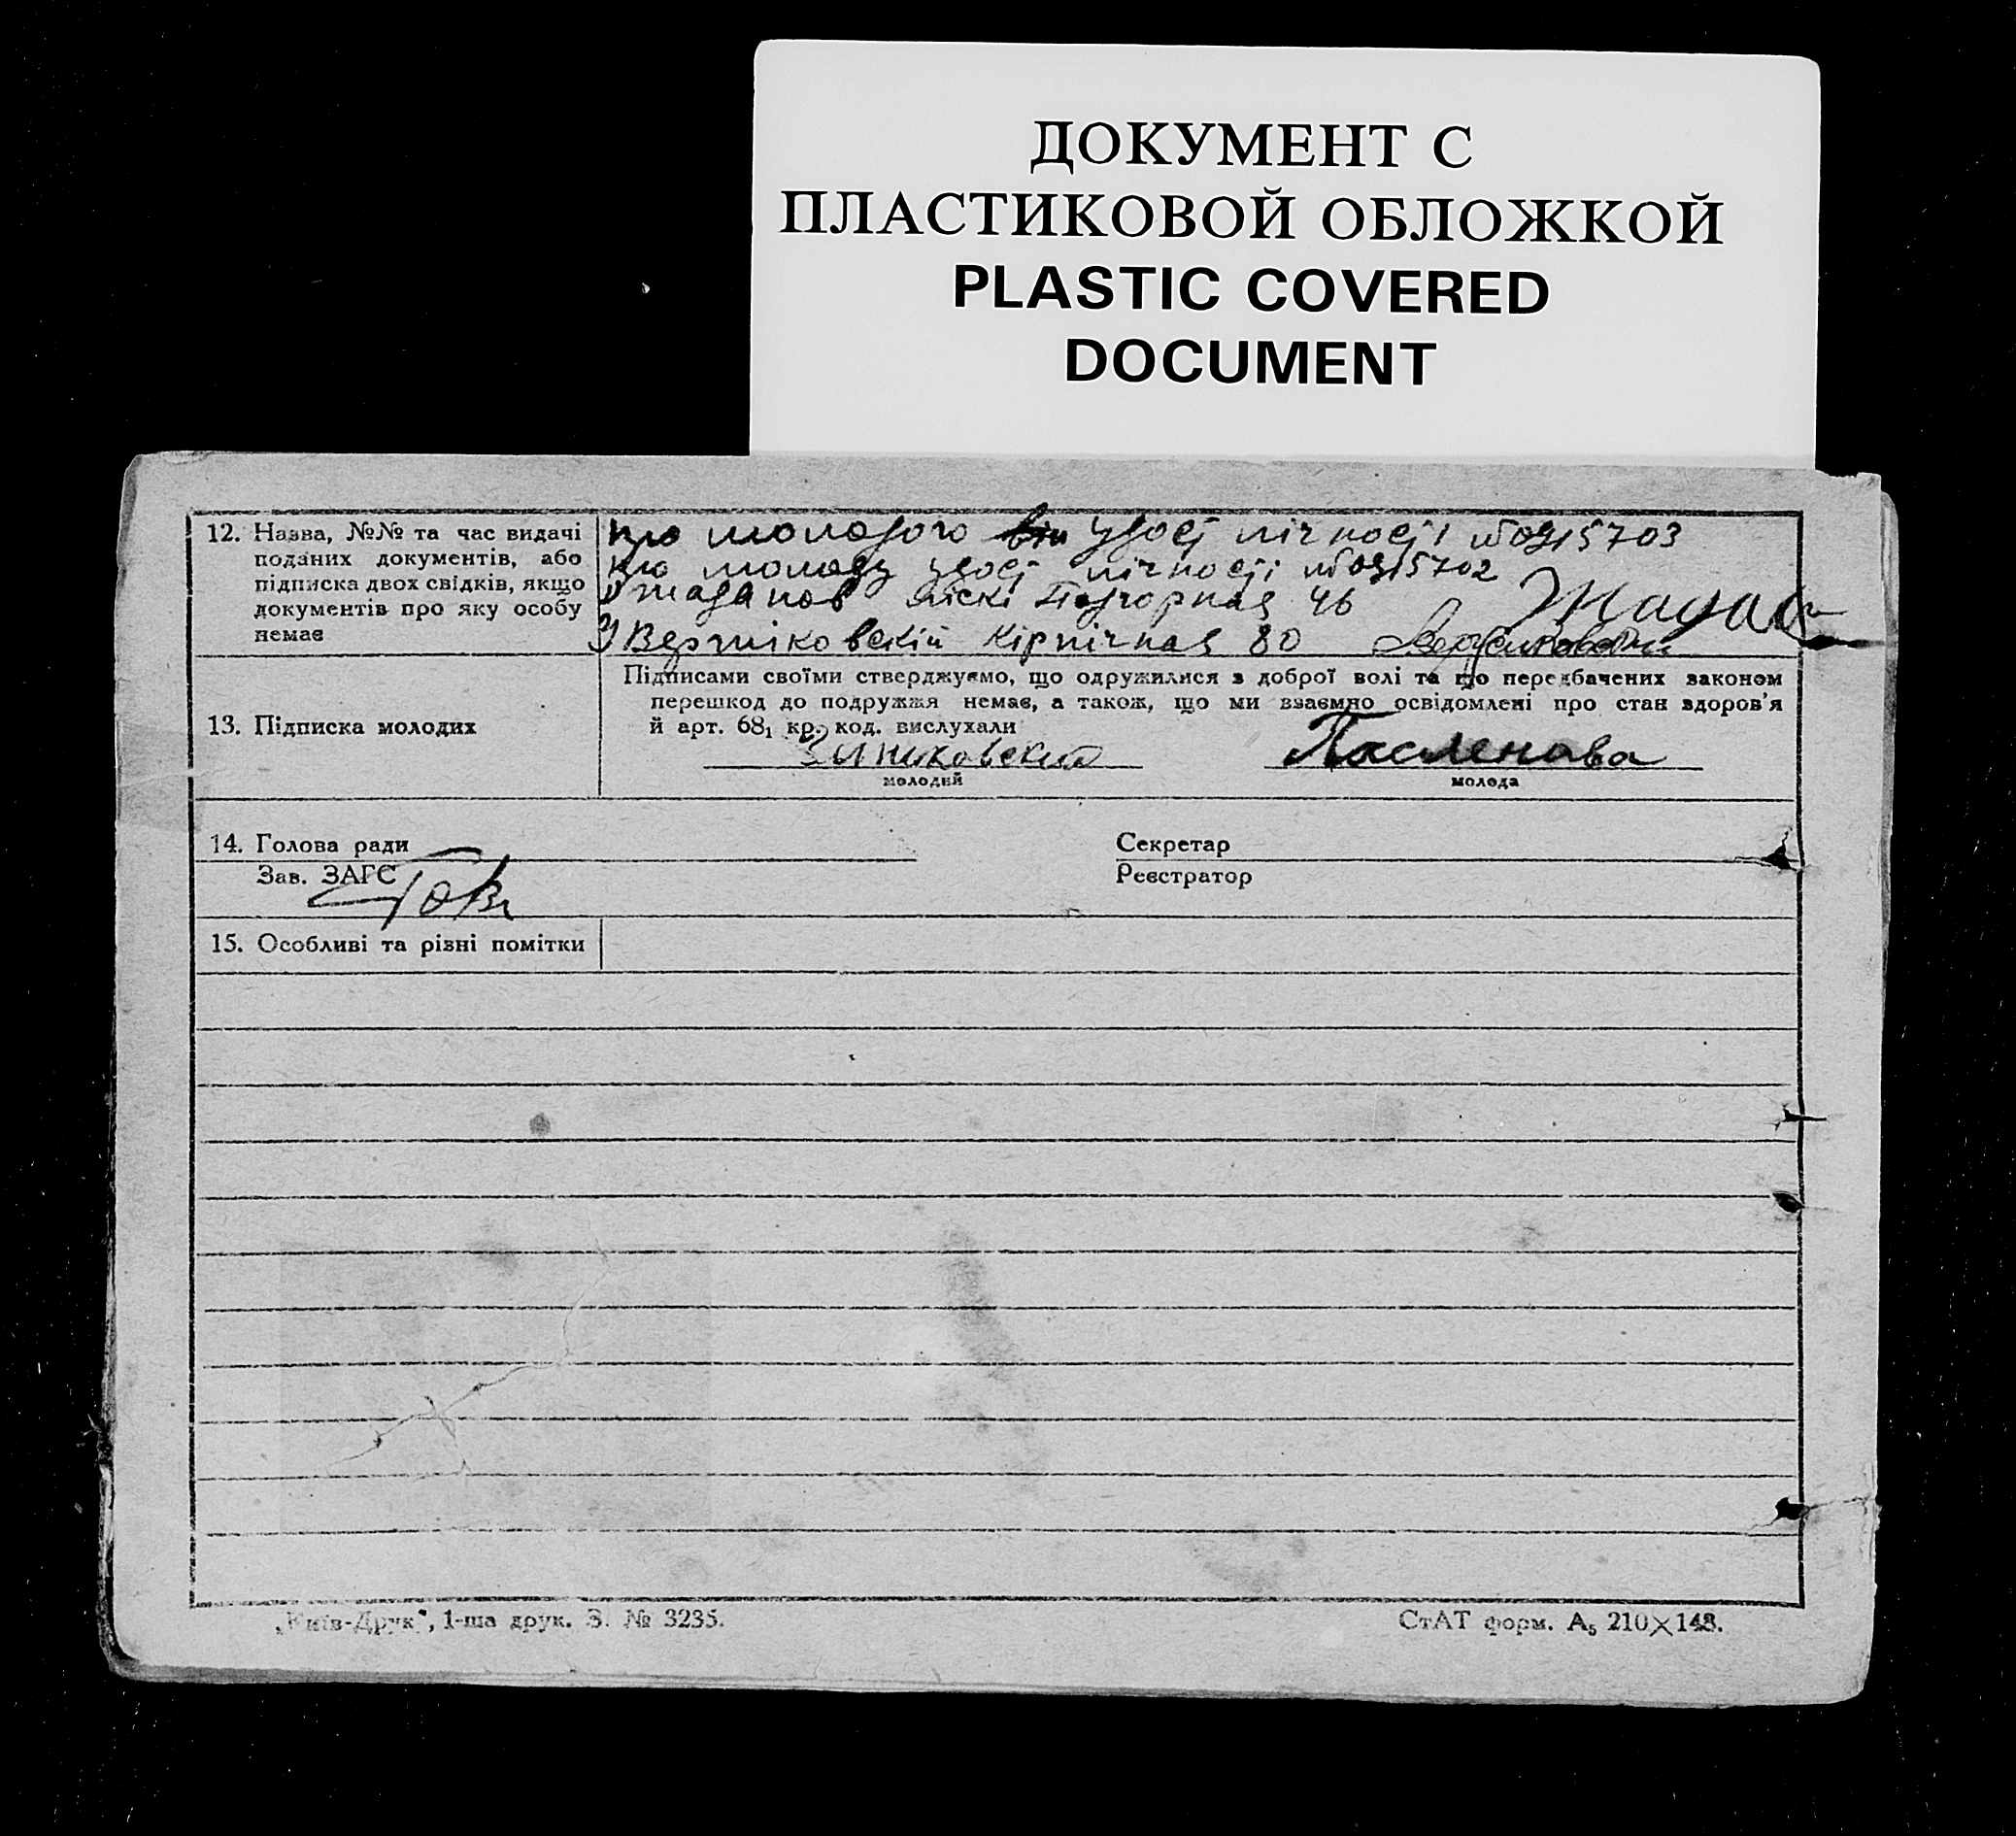 ДОКУМЕНТ С
ПЛАСТИКОВОЙ ОБЛОЖКОЙ
PLASTIC COVERED
DOCUMENT
12. Назва, №№ та час видачі
поданих документів, або
підписка двох свідків, якщо
документів про яку особу
немає
про молодого він удост лічності №0915703
про молоду удост лічності №0915702
46
Кірпічная 80
13. Підписка молодих
Підписами своїми стверджуємо, що одружилися з доброї волі та що передбачених законом
перешкод до подружжя немає, а також, що ми взаємно освідомлені про стан здоров'я
й арт. 68₁ кр. код. вислухали
молодий
молода
14. Голова ради
Секретар
Зав. ЗАГС
Реєстратор
15. Особливі та різні помітки
„Київ-Друк", 1-ша друк. З. № 3235.
СтАТ форм. А₅ 210×148.